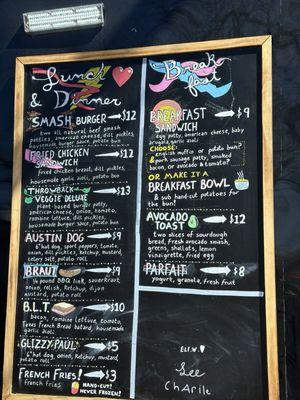 Lunch
& Dinner
SMASH BURGER → $12
two all natural beef smash
patties, american cheese, dill pickle,
housemade burger sauce, potato bun
FRIED CHICKEN → $12
SANDWICH
fried chicken breast, dill pickles,
housemade garlic aioli, potato bun
THROWBACK → $13
VEGGIE DELUXE
plant-based burger patty,
american cheese, onion, tomato,
romaine lettuce, dill pickles,
housemade burger sauce, potato bun
AUSTIN DOG → $9
6" hot dog, sport peppers, tomato,
onion, dill pickles, ketchup, mustard,
celery salt, potato roll
BRAUT → $9
1/4 pound BBQ link, sauerkraut,
onion, relish, ketchup, dijon
mustard, potato roll
B.L.T. → $10
bacon, romaine lettuce, tomato,
Texas French Bread batard, housemade
garlic aioli
GLIZZY PAUL → $5
6" hot dog, onion, ketchup, mustard,
potato roll
FRENCH FRIES! → $3
french fries
HAND-CUT!
NEVER FROZEN!
Breakfast
BREAKFAST → $9
SANDWICH
egg patty, american cheese, baby
arugula, garlic aioli
CHOOSE:
english muffin or potato bun?
& pork sausage patty, smoked
bacon, or avocado & tomato?
OR MAKE IT A
BREAKFAST BOWL
& sub hand-cut potatoes for
the bun!
AVOCADO → $12
TOAST
two slices of sourdough
bread, fresh avocado smash,
greens, shallots, lemon
vinaigrette, fried egg
PARFAIT → $8
yogurt, granola, fresh fruit
Lee
CHArlie